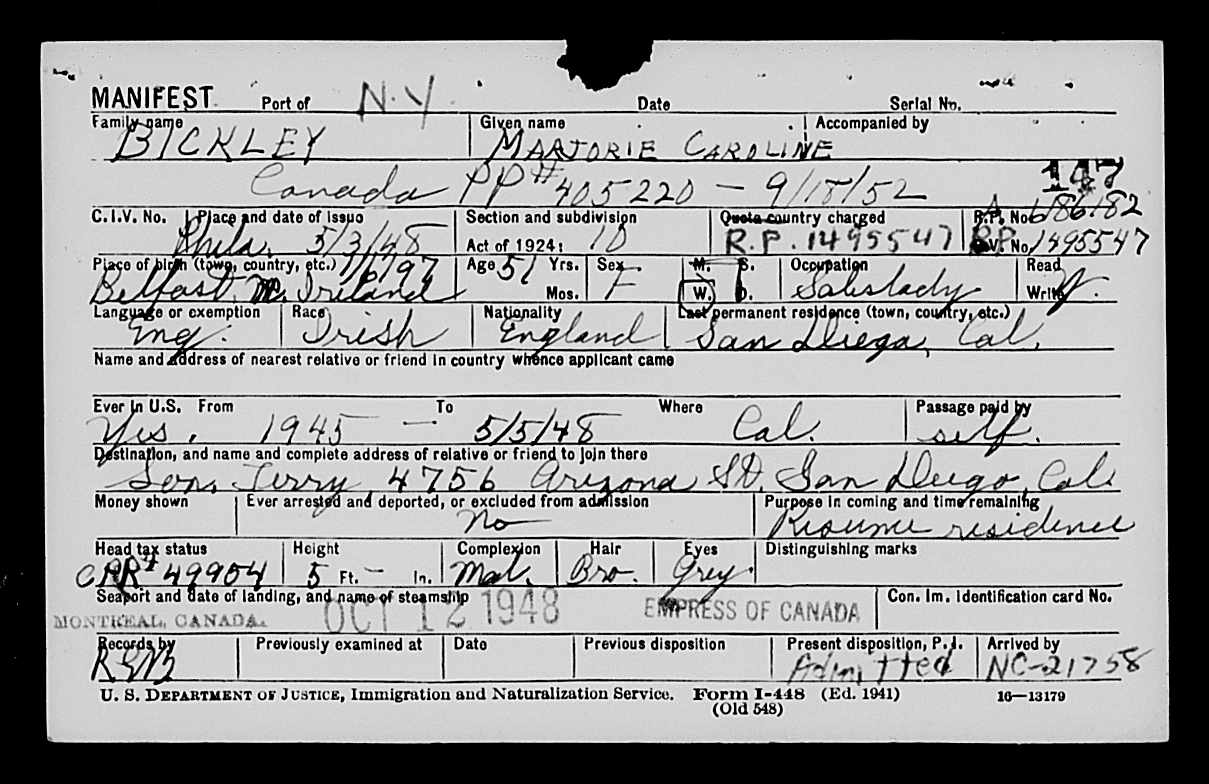 MANIFEST Port of N.Y. Date Serial No.
Family name Given name Accompanied by
BICKLEY MARJORIE CAROLINE
Canada PP# 405220 - 9/18/52 147
C.I.V. No. Place and date of issue Section and subdivision Quota country charged R.P. No. 6186182
Phila. 5/3/48 Act of 1924: 1D R.P. 1495547 R.P. V. No. 1495547
Place of birth (town, country, etc.) 1/6/97 Age 51 Yrs. Sex M. S. Occupation Read
Belfast, N. Ireland Mos. F W. D. Saleslady Write
Language or exemption Race Nationality Last permanent residence (town, country, etc.)
Eng. Irish England San Diego, Cal.
Name and address of nearest relative or friend in country whence applicant came
Ever in U.S. From To Where Passage paid by
Yes. 1945 — 5/5/48 Cal. self.
Destination, and name and complete address of relative or friend to join there
Son, Terry, 4756 Arizona St. San Diego, Cal.
Money shown Ever arrested and deported, or excluded from admission Purpose in coming and time remaining
No Resume residence
Head tax status Height Complexion Hair Eyes Distinguishing marks
# 49904 5 Ft. — In. Med. Bro. Grey.
Seaport and date of landing, and name of steamship Con. Im. Identification card No.
MONTREAL, CANADA. OCT 12 1948 EMPRESS OF CANADA
Records by Previously examined at Date Previous disposition Present disposition, P.I. Arrived by
Admitted NC-21758
U. S. DEPARTMENT OF JUSTICE, Immigration and Naturalization Service. Form I-448 (Ed. 1941) 16—13179
(Old 548)